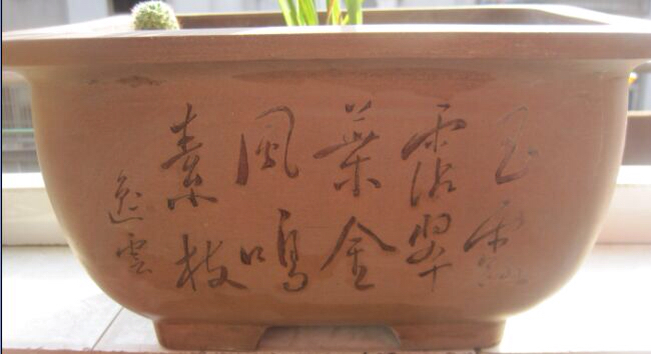 玉露
霑翠
葉金
風鳴
素枝
逸雲